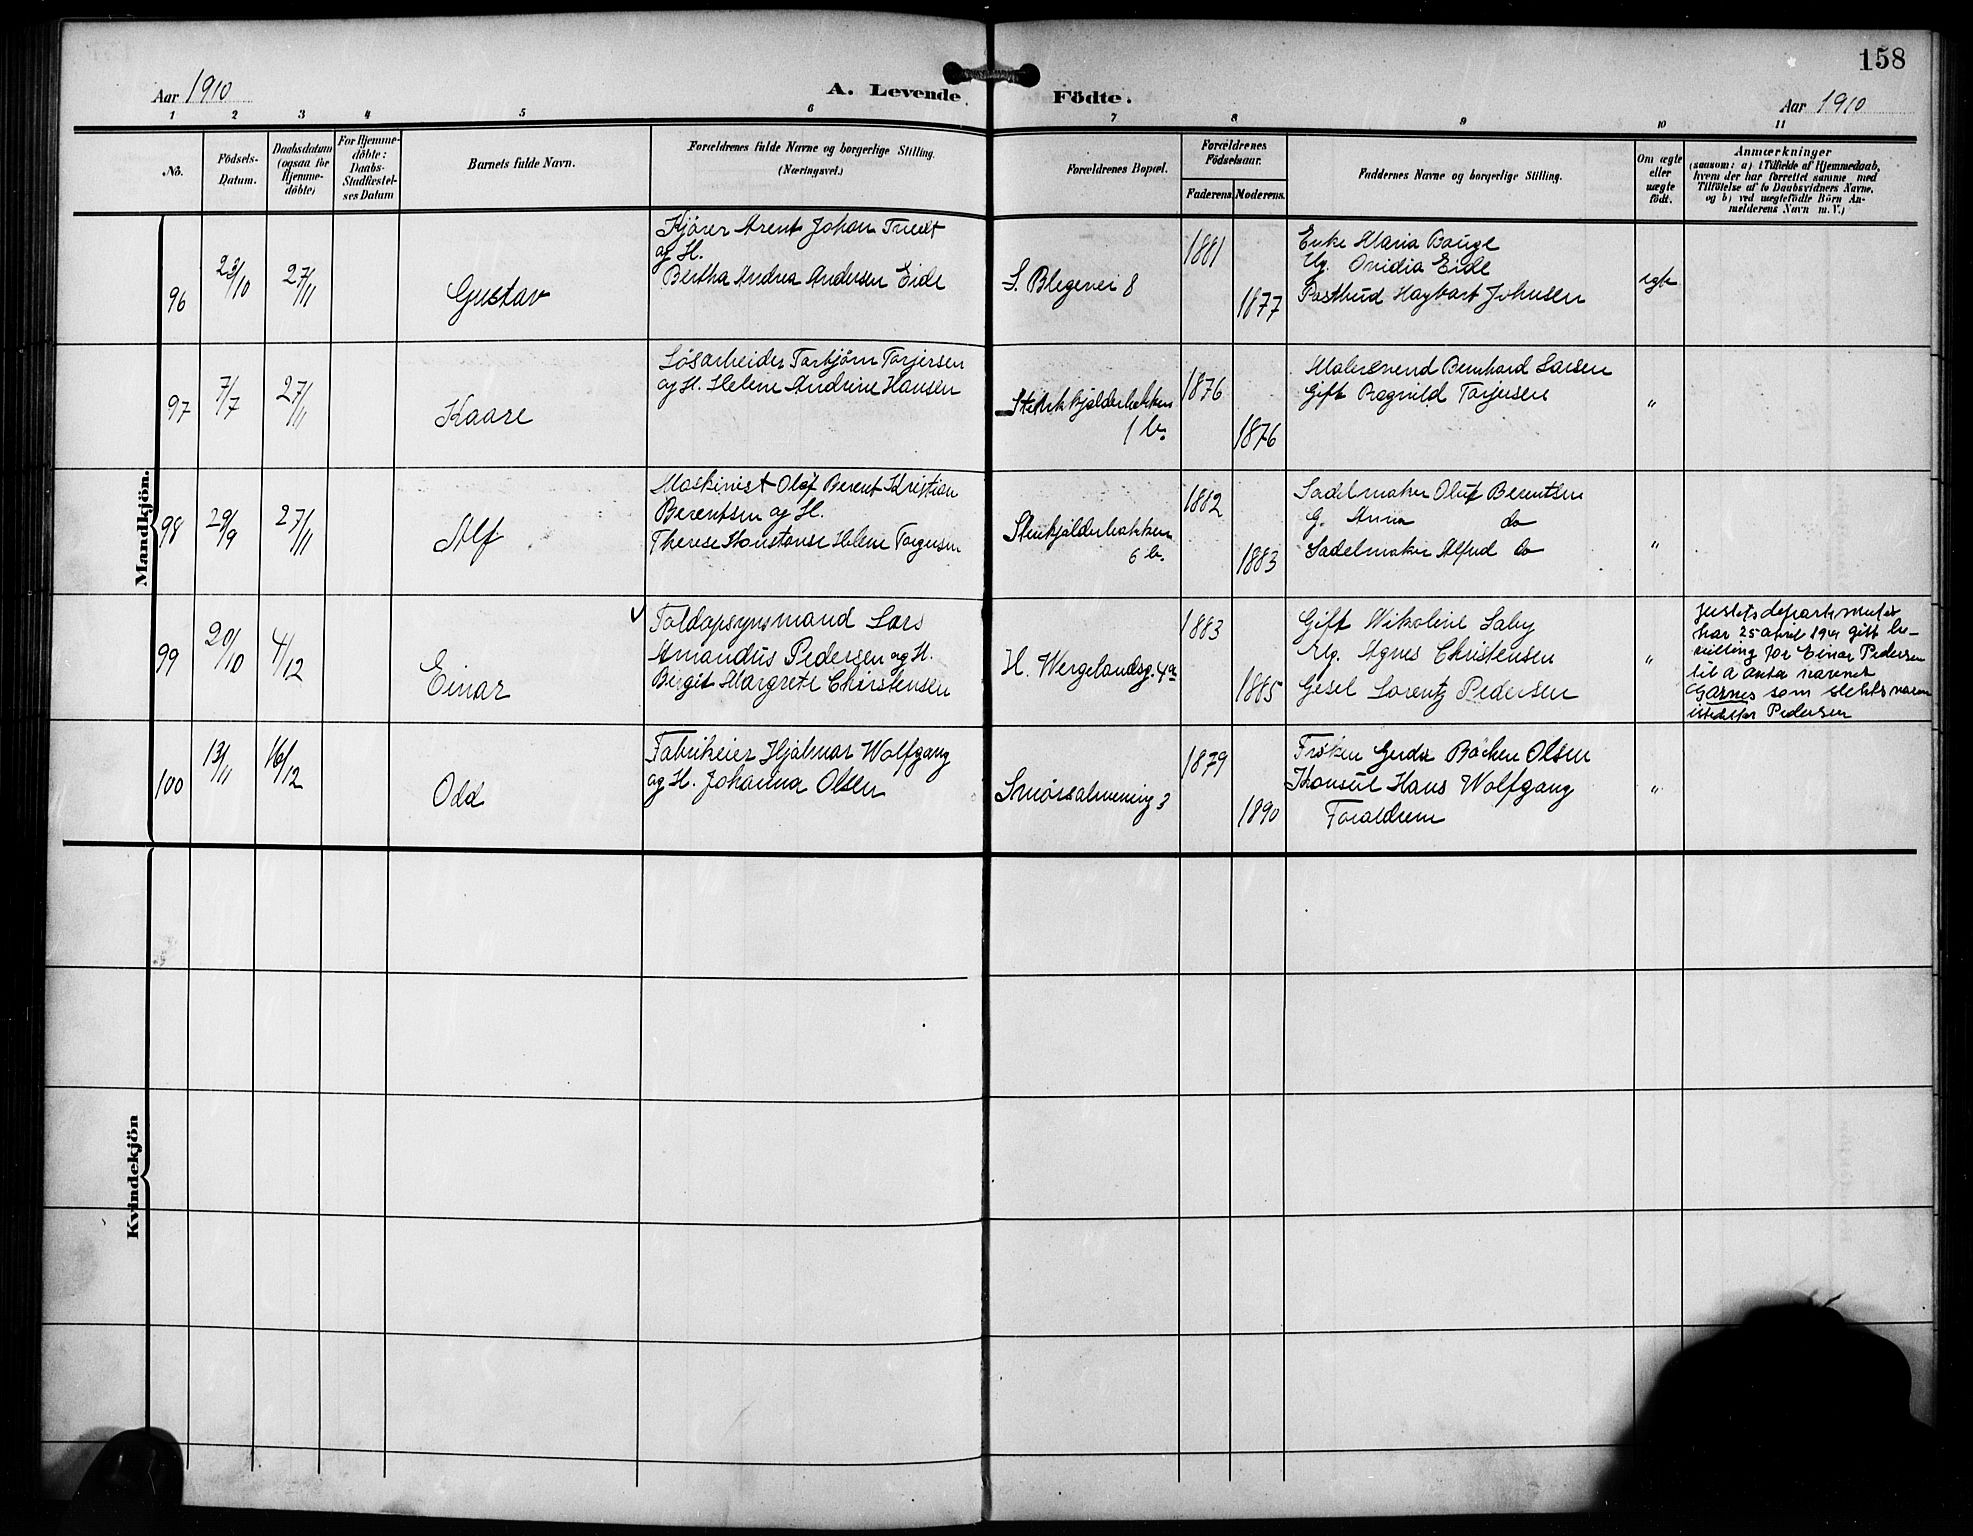 158
Aar 1910
A. Levende Födte.
Aar 1910
1 2 3 4 5 6 7 8 9 10 11
No.
Födsels-
Datum.
Daabsdatum
(ogsaa for
Hjemme-
döbte)
For Hjemme-
döbte:
Daabs-
Stadfæstel-
ses Datum
Barnets fulde Navn.
Forældrenes fulde Navne og borgerlige Stilling.
(Næringsvei.)
Forældrenes Bopæl.
Forældrenes
Födselsaar.
Faderens. Moderens.
Faddernes Navne og borgerlige Stilling.
Om ægte
eller
uægte
födt.
Anmærkninger
(saasom: a) i Tilfælde af Hjemmedaab,
hvem der har forrettet samme med
Tilföielse af to Daabsvidners Navne,
og b) ved uægtefödte Börn An-
melderens Navn m. V.)
Mandkjön.
96
23/10
27/11
Gustav
Kjører Arent Johan
og H.
Bertha Andrea Andersen Eide
S. Blegevei 8
1881
1877
Enke Maria Bauge
Ug. Ovidia Eide
Postbud Hagbart Johnsen
egte
97
7/7
27/11
Kaare
Løsarbeider Torbjørn Torjersen
og H. Helene Andrine Hansen
1 b.
1876
1876
Malersvend Bernhard Larsen
Gift Ragnild Torjersen
"
98
29/9
27/11
Alf
Maskinist Olaf Berent Kristian
Berentsen og H.
Therese Konstanse Helene Torgersen
Stenkjelderbakken
6 b.
1882
1883
Sadelmaker Oluf Berentsen
G. Anna do
Sadelmaker Alfred do
"
99
20/10
4/12
Einar
Toldopsynsmand Lars
Amandus Pedersen og H.
Birgit Margrete Christensen
H. Wergelandsg. 4a
1883
1885
Gift Nikoline Saby
Ug. Agnes Christensen
Gesel Lorentz Pedersen
"
Justitsdepartementet
har 25 april 1941 gitt be-
villing for Einar Pedersen
til å anta navnet
Garnes som slektsnavn
istedetfor Pedersen
100
13/11
16/12
Odd
Fabrikeier Hjalmar Wolfgang
og H. Johanna Olsen
Smørsalmening 3
1879
1890
Frøken Gerda Bøcken Olsen
Konsul Hans Wolfgang
Forældrene
"
Kvindekjön